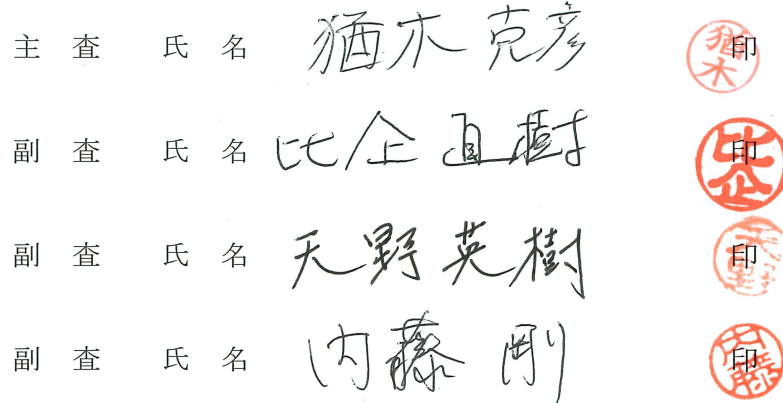 主 査 氏 名 猶木 克彦 印
副 査 氏 名 比企 直樹 印
副 査 氏 名 天野 英樹 印
副 査 氏 名 内藤 剛 印